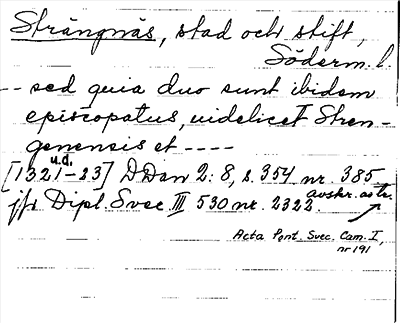 Strängnäs, stad och stift,
Söderm. l.
-- sed quia duo sunt ibidem
episcopatus, uidelicet Stren-
genensis et ----
u.d.
[1321-23] DDan 2:8, s. 354 nr. 385
avskr.
jfr Dipl. Svec III 530 nr. 2322.
Acta Pont. Svec. Cam. I,
nr 191